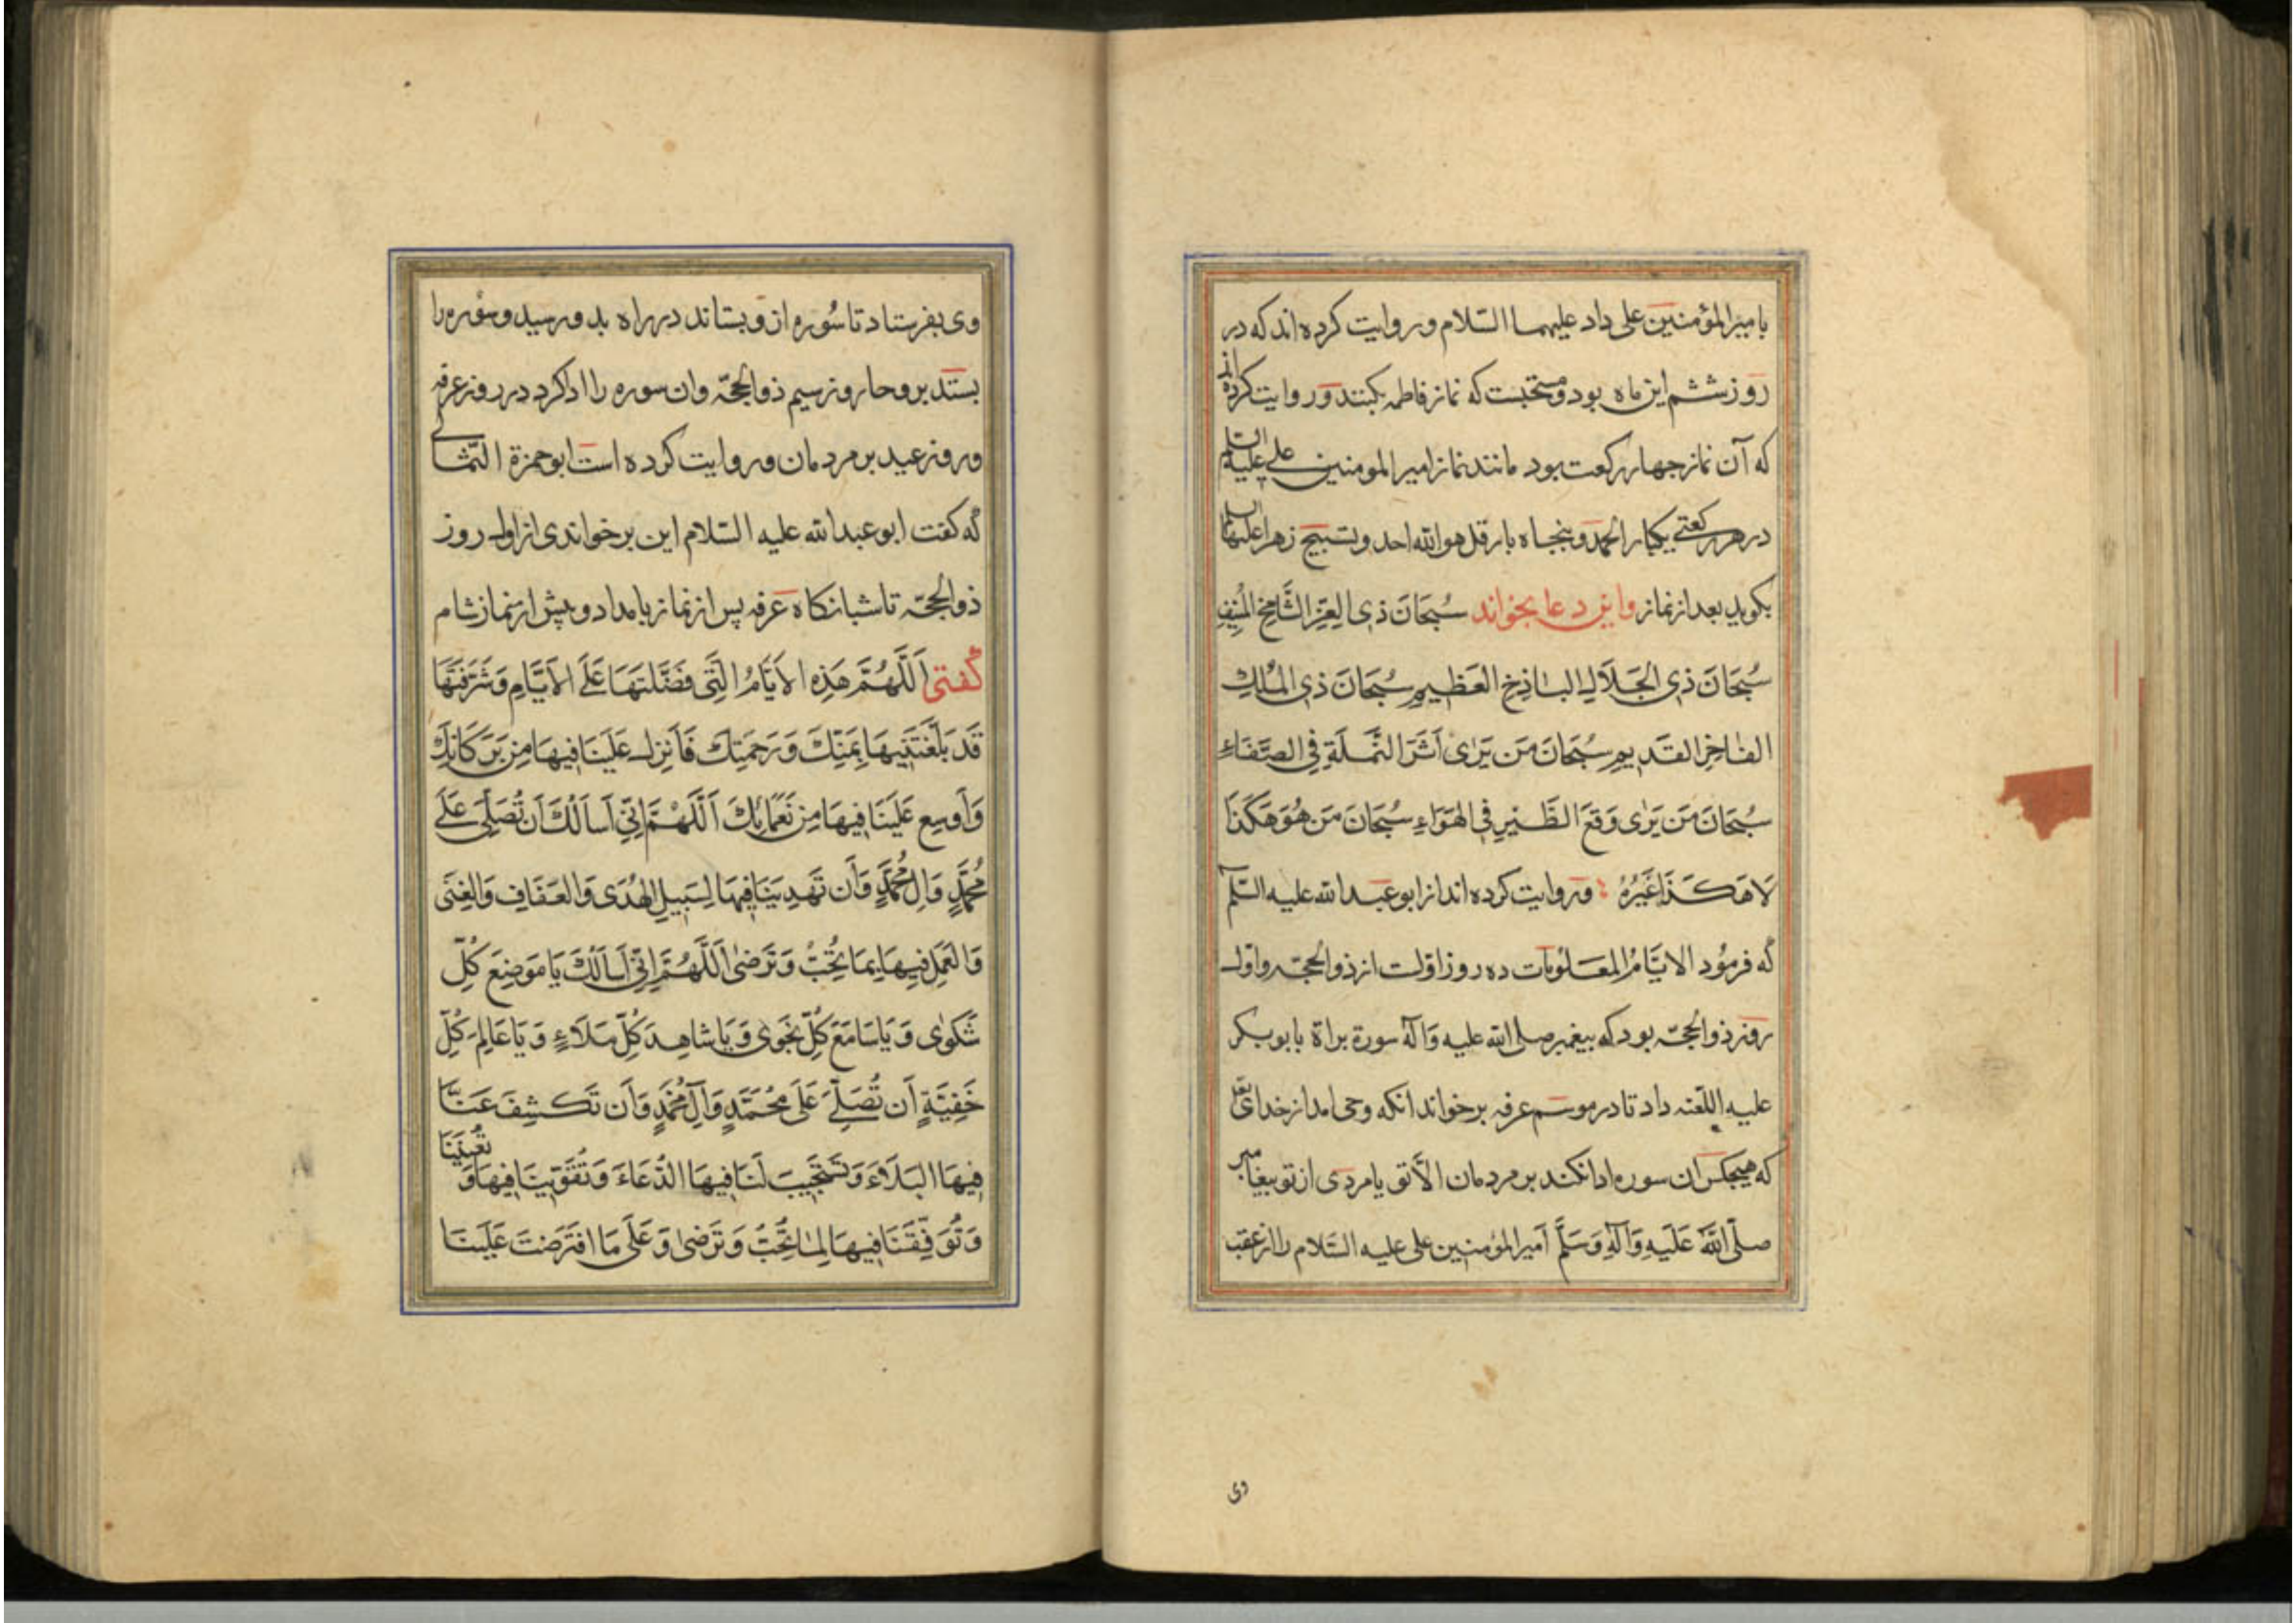 بامیرالمؤمنین علی داد علیهما السّلام وروایت کرده اند که در
روز ششم این ماه بود ومستحبست که نماز فاطمه بکنند وروایت کرده اند
که آن نماز چهار رکعت بود مانند نماز امیرالمومنین علی علیه السلم
در هر رکعتی یکبار الحمد وپنجاه بار قل هوالله احد وتسبیح زهرا علیها السلم
بکوید بعد از نماز واین دعا بخواند سُبحَانَ ذِی العِزِّ الشَّامِخِ المُنِیفِ
سُبحَانَ ذِی الجَلَالِ البَاذِخِ العَظِیمِ سُبحَانَ ذِی المُلكِ
الفَاخِرِ القَدِیمِ سُبحَانَ مَن یَرَی اَثَرَ النَّملَةِ فِی الصَّفَاءِ
سُبحَانَ مَن یَرَی وَقعَ الطَّیرِ فِی الهَوَاءِ سُبحَانَ مَن هُوَ هَکَذَا
لَا هَکَذَا غَیرُهُ وروایت کرده اند از ابو عبدالله علیه السّلم
که فرمُود الایَّامُ المَعلُومَات ده روز اوّلست از ذوالحجّه واوّل
روز ذوالحجّه بود که پیغمبر صلی الله علیه وَآله سورة براة بابو بکر
علیه اللّعنه داد تا در موسم عرفه برخواند انکه وحی امد از خدای تع
که هیچکس ان سوره ادا نکند بر مردمان الّا تو یا مردی از تو پیغامبر
صلَّی اللَّهُ عَلَیهِ وَآلهِ وَسَلَّم اَمیرالمؤمنین علی علیه السّلام را از عقب
وی
وی بفرستاد تا سُوره از و بستاند در راه بدو رسید وسُوره را
بستد بروحا روز سیم ذوالحجّه وان سوره را ادا کرد در روز عرفه
وروز عید بر مردمان وروایت کرده است ابوحمزة الثّمالی
که کفت ابو عبدالله علیه السّلام این برخواندی از اول روز
ذوالحجّه تا شبانکاه عرفه پس از نماز بامداد وپیش از نماز شام
کفتی اَللَّهُمَّ هَذِهِ الاَیَّامُ الَّتِی فَضَّلتَهَا عَلَی الاَیَّامِ وَشَرَّفتَهَا
قَد بَلَّغتَنِیهَا بِمَنِّكَ وَرَحمَتِكَ فَاَنزِل عَلَینَا فِیهَا مِن بَرَکَاتِكَ
وَاَوسِع عَلَینَا فِیهَا مِن نَعمَائِكَ اَللَّهُمَّ اِنِّی اَساَلُكَ اَن تُصَلِّی عَلَی
مُحَمَّدٍ وَالِ مُحَمَّدٍ وَاَن تَهدِیَنَا فِیهَا لِسَبِیلِ الهُدَی وَالعَفَافِ وَالغِنَی
وَالعَمَلِ فِیهَا بِمَا تُحِبُّ وَتَرضَی اَللَّهُمَّ اِنِّی اَساَلُكَ یَا مَوضِعَ کُلِّ
شَکوَی وَیَا سَامِعَ کُلِّ نَجوَی وَیَا شَاهِدَ کُلِّ مَلَاءٍ وَیَا عَالِمَ کُلِّ
خَفِیَّةٍ اَن تُصَلِّیَ عَلَی مُحَمَّدٍ وَآلِ مُحَمَّدٍ وَاَن تَکشِفَ عَنَّا
فِیهَا البَلَاءَ وَتَستَجِیبَ لَنَا فِیهَا الدُّعَاءَ وَتُقَوِّیَنَا فِیهَا وَتُعِینَنَا
وَتُوَفِّقَنَا فِیهَا لِمَا تُحِبُّ وَتَرضَی وَعَلَی مَا افتَرَضتَ عَلَینَا